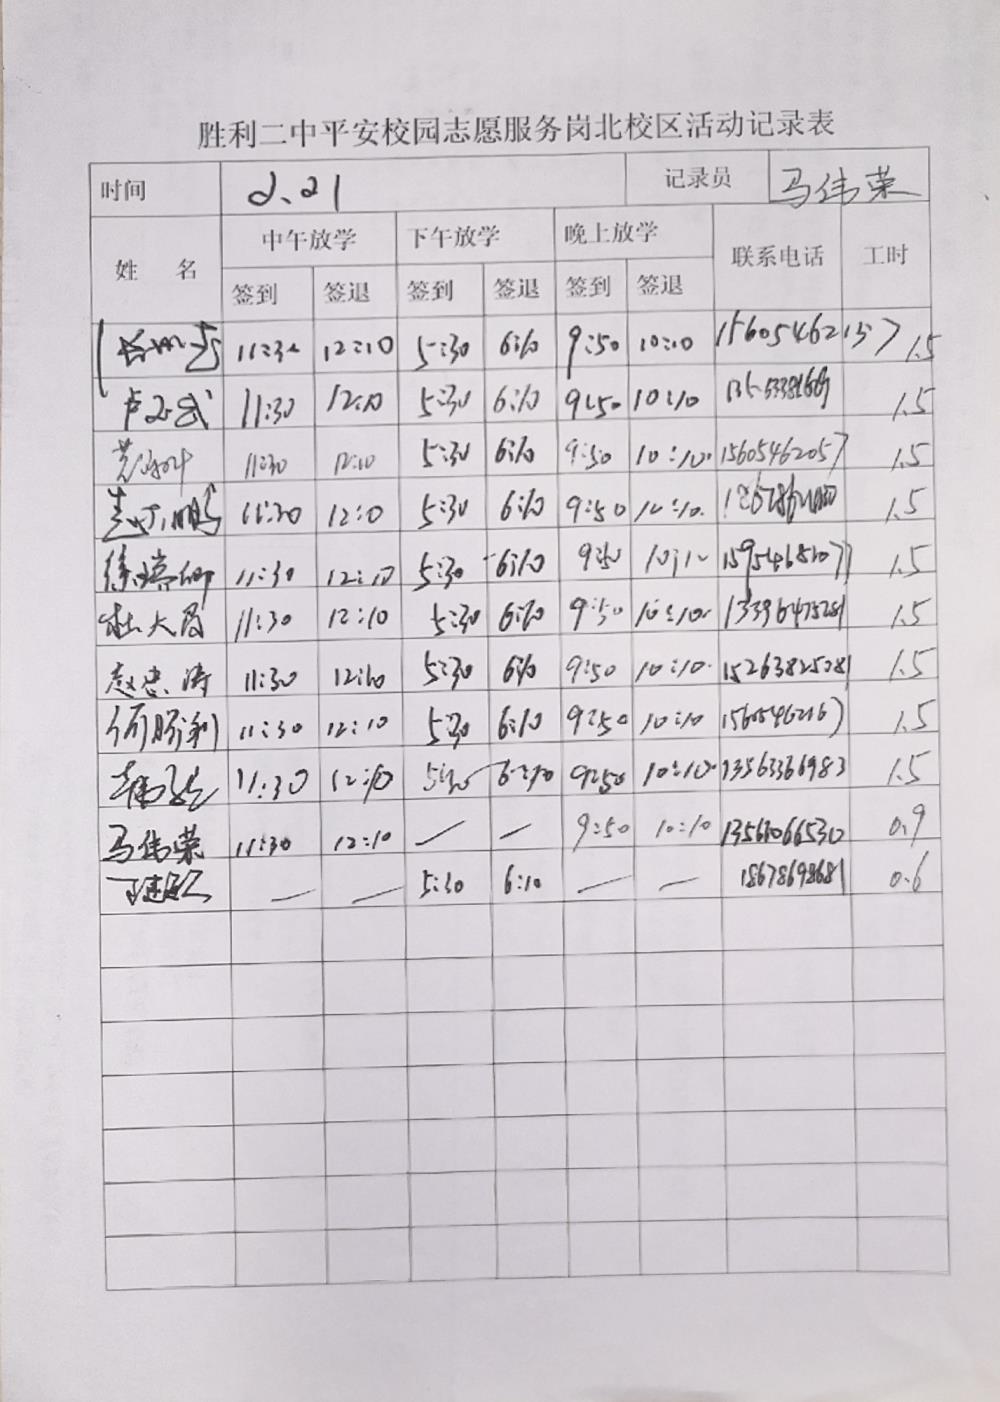 胜利二中平安校园志愿服务岗北校区活动记录表
时间 2.21 记录员 马伟荣
姓 名 中午放学 下午放学 晚上放学 联系电话 工时
签到 签退 签到 签退 签到 签退
11:30 12:10 5:30 6:10 9:50 10:10 15605462137 1.5
11:30 12:10 5:30 6:10 9:50 10:10 1.5
11:30 12:10 5:30 6:10 9:50 10:10. 15605462057 1.5
11:30 12:10 5:30 6:10 9:50 10:10. 1.5
11:30 12:10 5:30 6:10 9:50 10:10 1.5
杜大昌 11:30 12:10 5:30 6:10 9:50 10:10. 13396475281 1.5
赵忠涛 11:30 12:10 5:30 6:10 9:50 10:10. 15263825281 1.5
何胜利 11:30 12:10 5:30 6:10 9:50 10:10 15605462167 1.5
11:30 12:10 5:30 6:10 9:50 10:10. 13563366983 1.5
马伟荣 11:30 12:10 — — 9:50 10:10 13561066530 0.9
— — 5:30 6:10 — — 18678698681 0.6